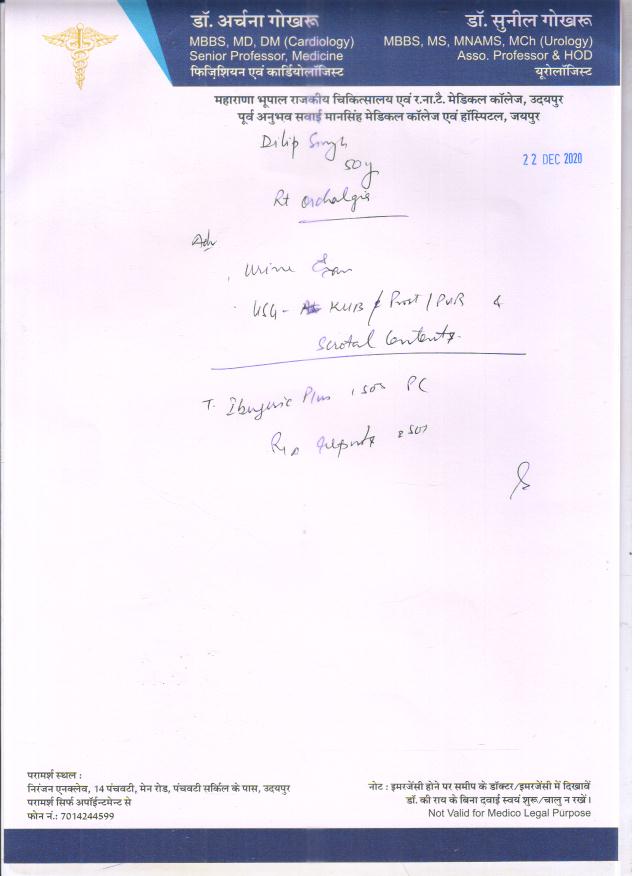 डॉ. अर्चना गोखरू
MBBS, MD, DM (Cardiology)
Senior Professor, Medicine
फिज़िशियन एवं कार्डियोलॉजिस्ट
डॉ. सुनील गोखरू
MBBS, MS, MNAMS, MCh (Urology)
Asso. Professor & HOD
यूरोलॉजिस्ट
महाराणा भूपाल राजकीय चिकित्सालय एवं र.ना.टै. मेडिकल कॉलेज, उदयपुर
पूर्व अनुभव सवाई मानसिंह मेडिकल कॉलेज एवं हॉस्पिटल, जयपुर
Dilip Singh
50y
22 DEC 2020
Rt Orchalgia
Adv
Urine Exam
USG - KUB / Prost / PVR &
Scrotal Contents.
T. Ibugesic Plus 1 SOS PC
Reports
परामर्श स्थल :
निरंजन एनक्लेव, 14 पंचवटी, मेन रोड, पंचवटी सर्किल के पास, उदयपुर
परामर्श सिर्फ अपॉईन्टमेन्ट से
फोन नं.: 7014244599
नोट : इमरजेंसी होने पर समीप के डॉक्टर/इमरजेंसी में दिखावें
डॉ. की राय के बिना दवाई स्वयं शुरू/चालु न रखें।
Not Valid for Medico Legal Purpose